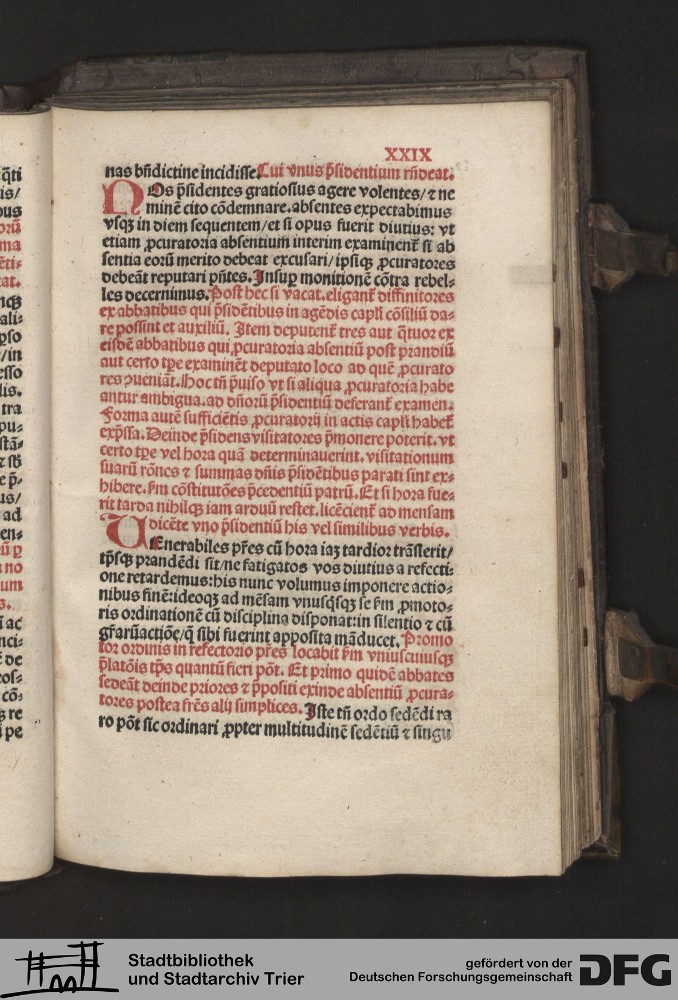 XXIX
nas bñdictine incidisse. Cui vnus p̃sidentium rñdeat.
NOs p̃sidentes gratiosius agere volentes/ ⁊ ne
minẽ cito cõdemnare. absentes expectabimus
vsqꝫ in diem sequentem/ et si opus fuerit diutius: vt
etiam ꝓcuratoria absentium interim examinent̃ si ab
sentia eorũ merito debeat excusari/ ipsiqꝫ ꝓcuratores
debeãt reputari pñtes. Insuꝑ monitionẽ cõtra rebel⸗
les decernimus. Post hec si vacat. eligant̃ diffinitores
ex abbatibus qui p̃sidẽtibus in agẽdis capĺi cõsiliũ da⸗
re possint et auxiliũ. Item deputent̃ tres aut q̃tuor ex
eisdẽ abbatibus qui ꝓcuratoria absentiũ post prandiũ
aut certo tꝑe examinẽt deputato loco ad quẽ ꝓcurato
res ꝯueniãt. Hoc tñ p̃uiso vt si aliqua ꝓcuratoria habe
antur ambigua. ad dñorũ p̃sidentiũ deferant̃ examen.
Forma autẽ sufficiẽtis ꝓcuratorij in actis capĺi habet̃
exp̃ssa. Deinde p̃sidens visitatores p̃monere poterit. vt
certo tꝑe vel hora quã determinauerint. visitationum
suarũ rõnes ⁊ summas dñis p̃sidẽtibus parati sint ex⸗
hibere. ẜm cõstitutões p̃cedentiũ patrũ. Et si hora fue⸗
rit tarda nihilqꝫ iam arduũ restet. licẽcient̃ ad mensam
dicẽte vno p̃sidentiũ his vel similibus verbis.
VEnerabiles pr̃es cũ hora iaꝫ tardior trãsierit/
tp̃sqꝫ prandẽdi sit/ ne fatigatos vos diutius a refecti⸗
one retardemus: his nunc volumus imponere actio⸗
nibus finẽ: ideoqꝫ ad mẽsam vnusq̃sqꝫ se ẜm ꝓmoto⸗
ris ordinationẽ cũ disciplina disponat: in silentio ⁊ cũ
gr̃arũ actiõe/ q̃ sibi fuerint apposita mãducet. Promo
tor ordinis in refectorio pr̃es locabit ẜm vniuscuiusqꝫ
p̃latõis tp̃s quantũ fieri põt. Et primo quidẽ abbates
sedeãt deinde priores ⁊ p̃positi exinde absentiũ ꝓcura⸗
tores postea fr̃es alij simplices. Iste tñ ordo sedẽdi ra
ro põt sic ordinari ꝓpter multitudinẽ sedẽtiũ ⁊ singu
Stadtbibliothek
und Stadtarchiv Trier
gefördert von der
Deutschen Forschungsgemeinschaft
DFG